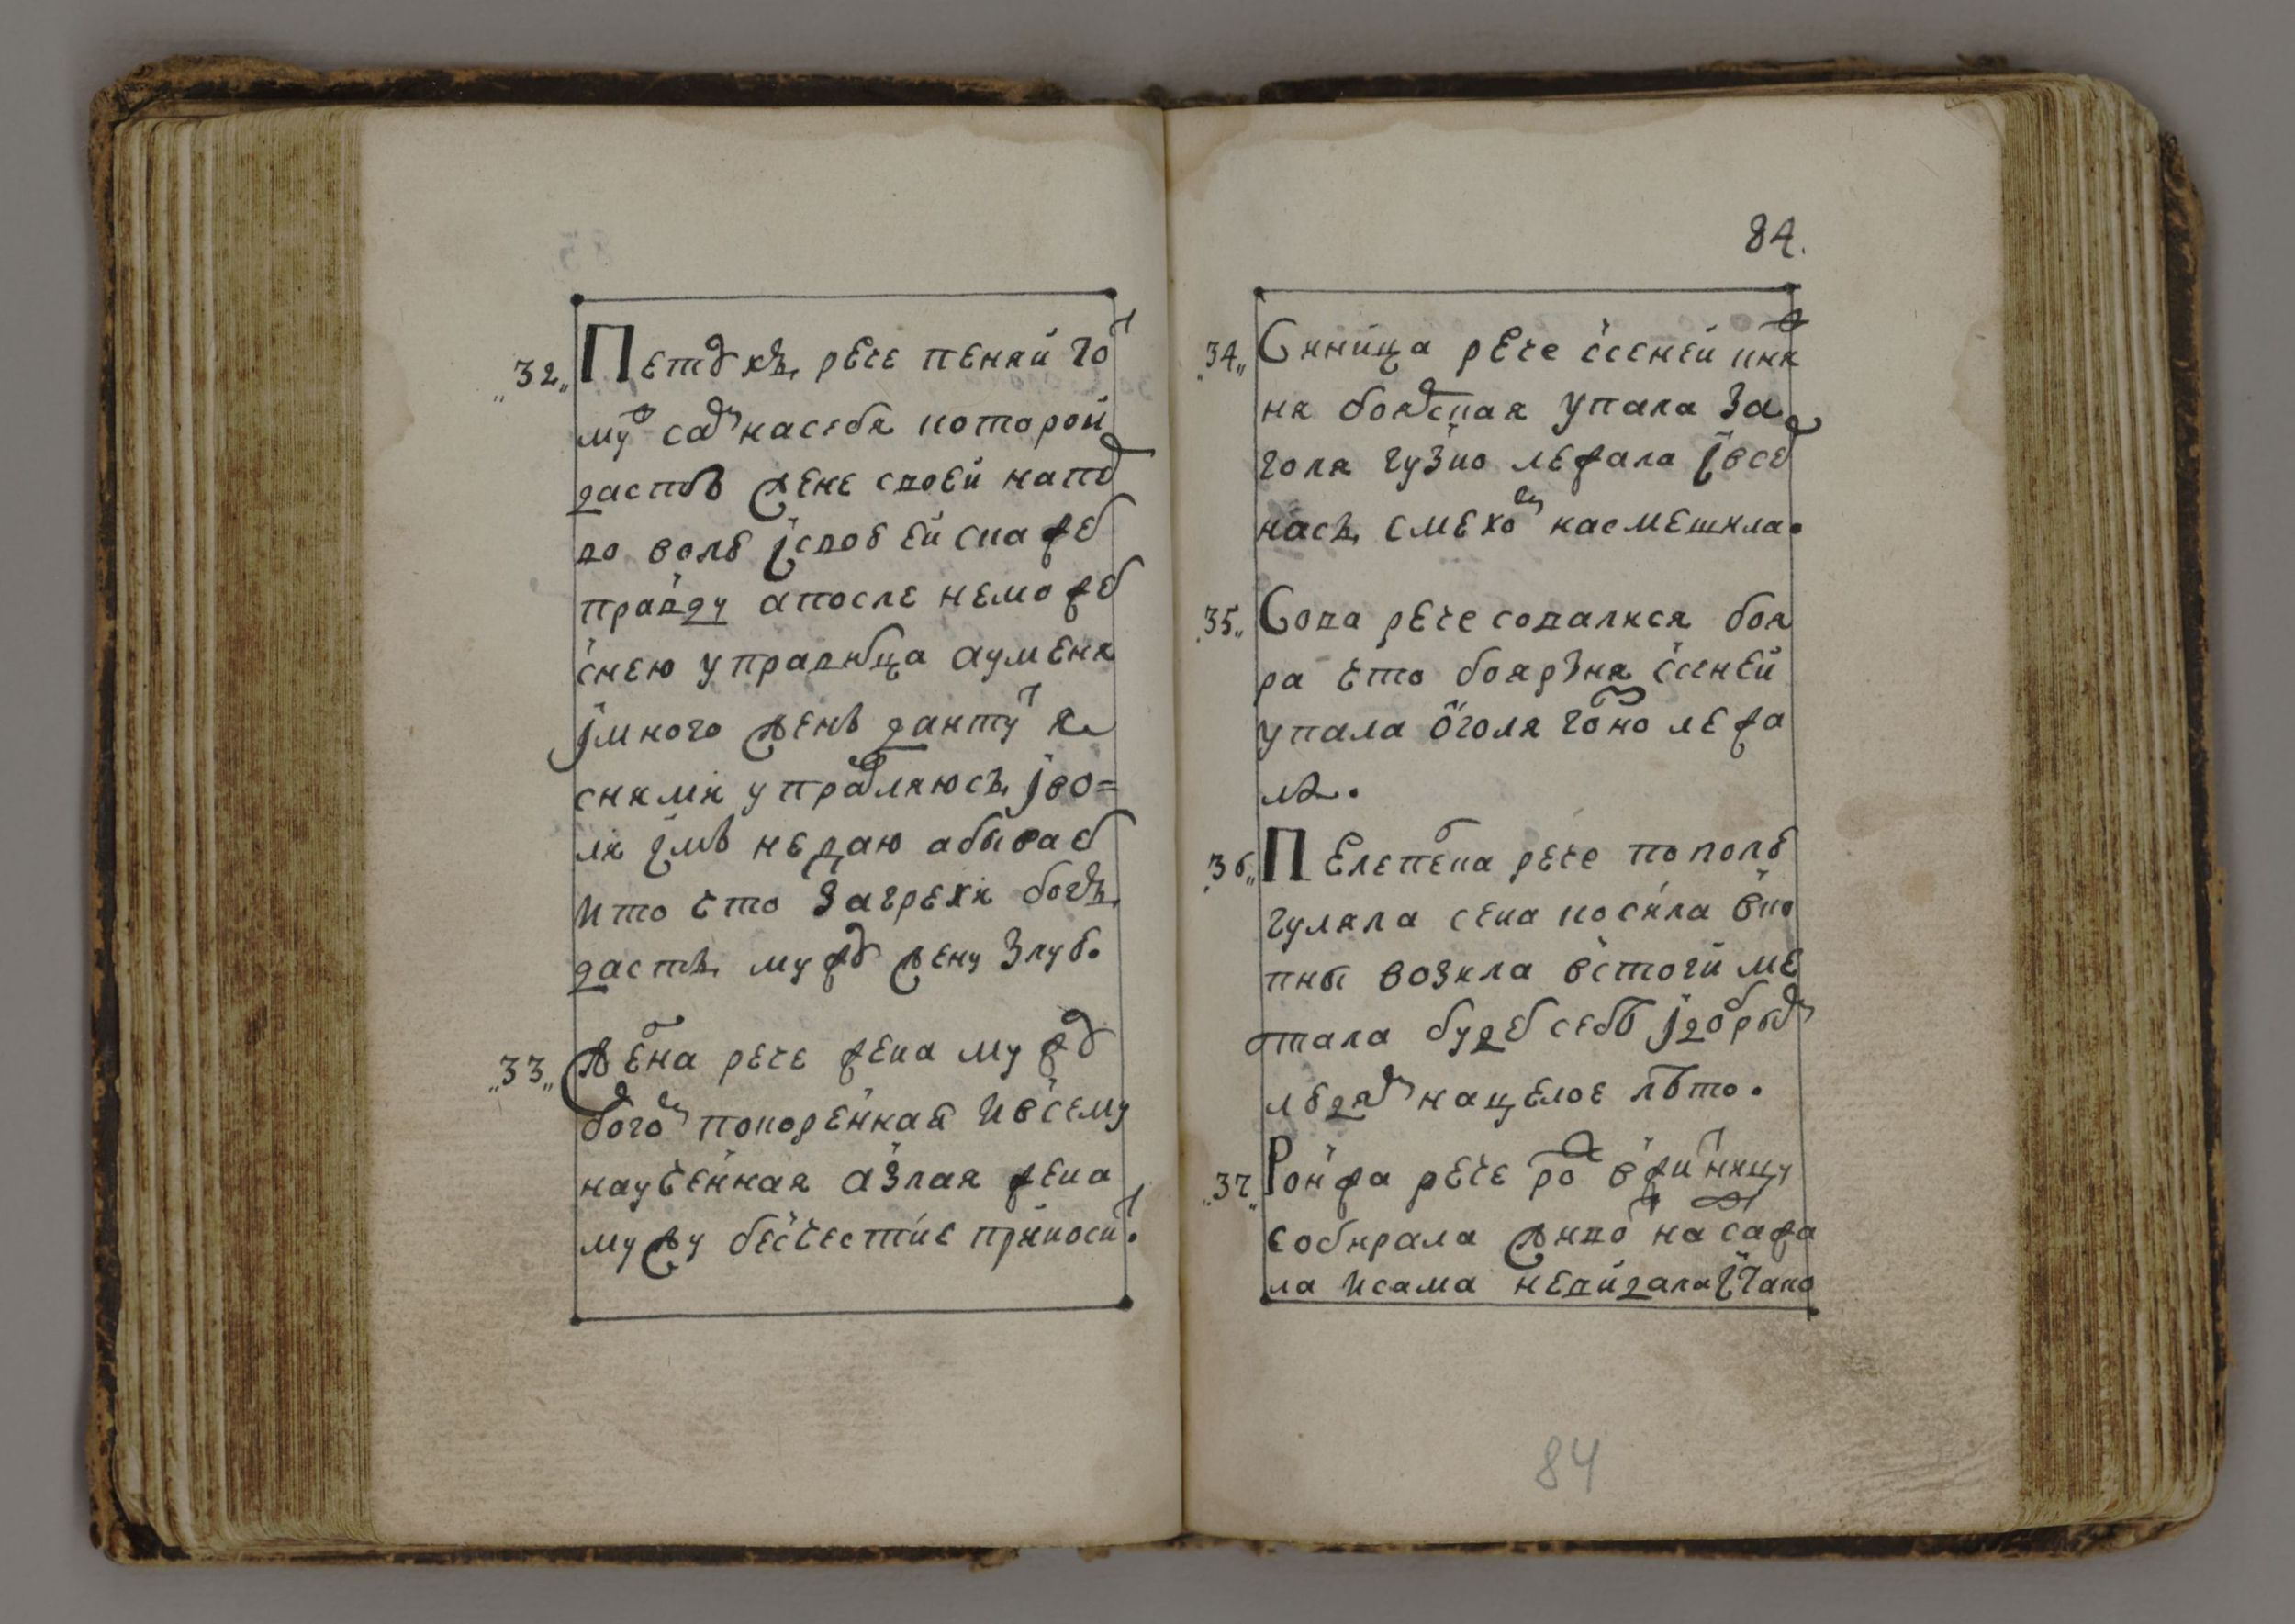 32 Петухъ рече пеняй го
муж сам на себя которой
дастъ жене своей на пе
во волю и своей скаже
правду а после не може
с нею управица а у меня
и много женъ да нту я
с ними управляюсъ и во=
ли имъ не даю а бывае
и то что за грехи богъ
дастъ мужю жену злую.
33 Жена рече жена мужю
богом покоренная и всему
наученная а злая жена
мужу бесчестие приноси.
84.
34 Синица рече с сеней кня
ня боярская упала за
голя гузно лежала и все
насъ смехом насмешила.
35 Сова рече совалися боя
ра что боярыня с сеней
упала оголя гозно лежа
ла.
36 Перепелка рече по полю
гуляла сена косила в ко
пны возила в стоги ме
тала буде себѣ и добрым
людям на целое лѣто.
37 Ронжа рече рож в житницу
собирала живот насажа
ла и сама не видала и тако
84